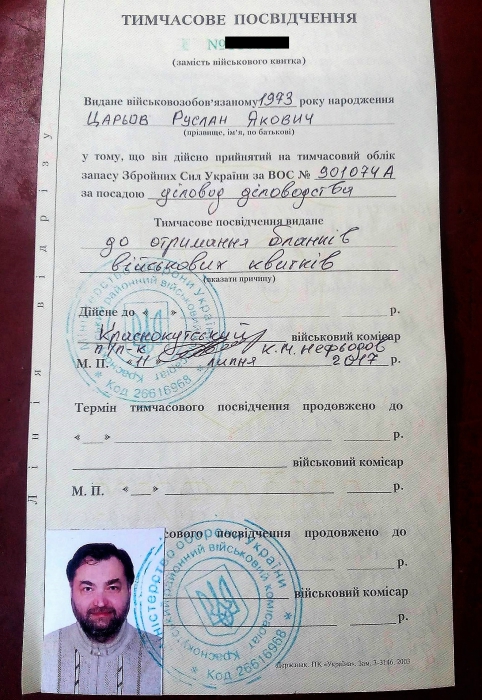 ТИМЧАСОВЕ ПОСВІДЧЕННЯ
№
(замість військового квитка)
Видане військовозобов'язаному 1973 року народження
Царьов Руслан Якович
(прізвище, ім'я, по батькові)
у тому, що він дійсно прийнятий на тимчасовий облік
запасу Збройних Сил України за ВОС № 901074А
за посадою діловод діловодства
Тимчасове посвідчення видане
до отримання бланків
військових квитків
(вказати причину)
Дійсне до « » р.
Краснокутський військовий комісар
п/п-к К.М. Нефьодов
М. П. «11» липня 2017 р.
Термін тимчасового посвідчення продовжено до
« » р.
військовий комісар
М. П. « » р.
сового посвідчення продовжено до
р.
військовий комісар
р.
Держзнак. ПК «Україна». Зам. 3-3146. 2003
Лінія відрізу
Міністерство оборони України
Код 26616968
Міністерство оборони України
Краснокутський районний військовий комісаріат
Код 26616968